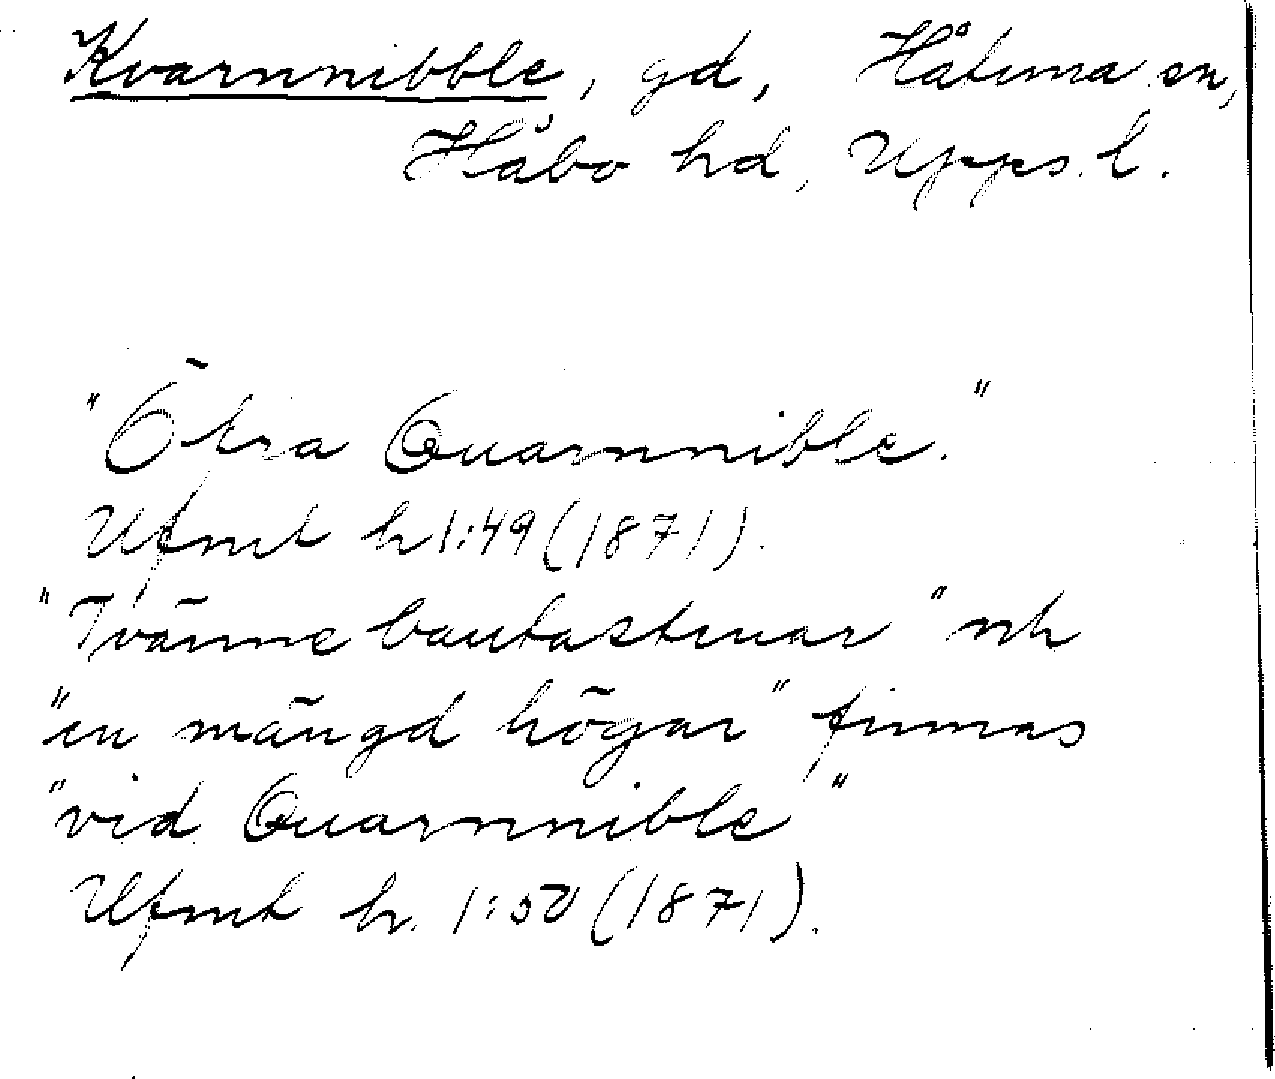 Kvarnnibble, gd, Håtuna sn,
Håbo hd, Upps. l.
"Östra Quarnnible."
Ufmt h 1:49 (1871).
"Tvänne bautastenar" och
"en mängd högar" finnas
"vid Quarnnible"
Ufmt h. 1:50 (1871).